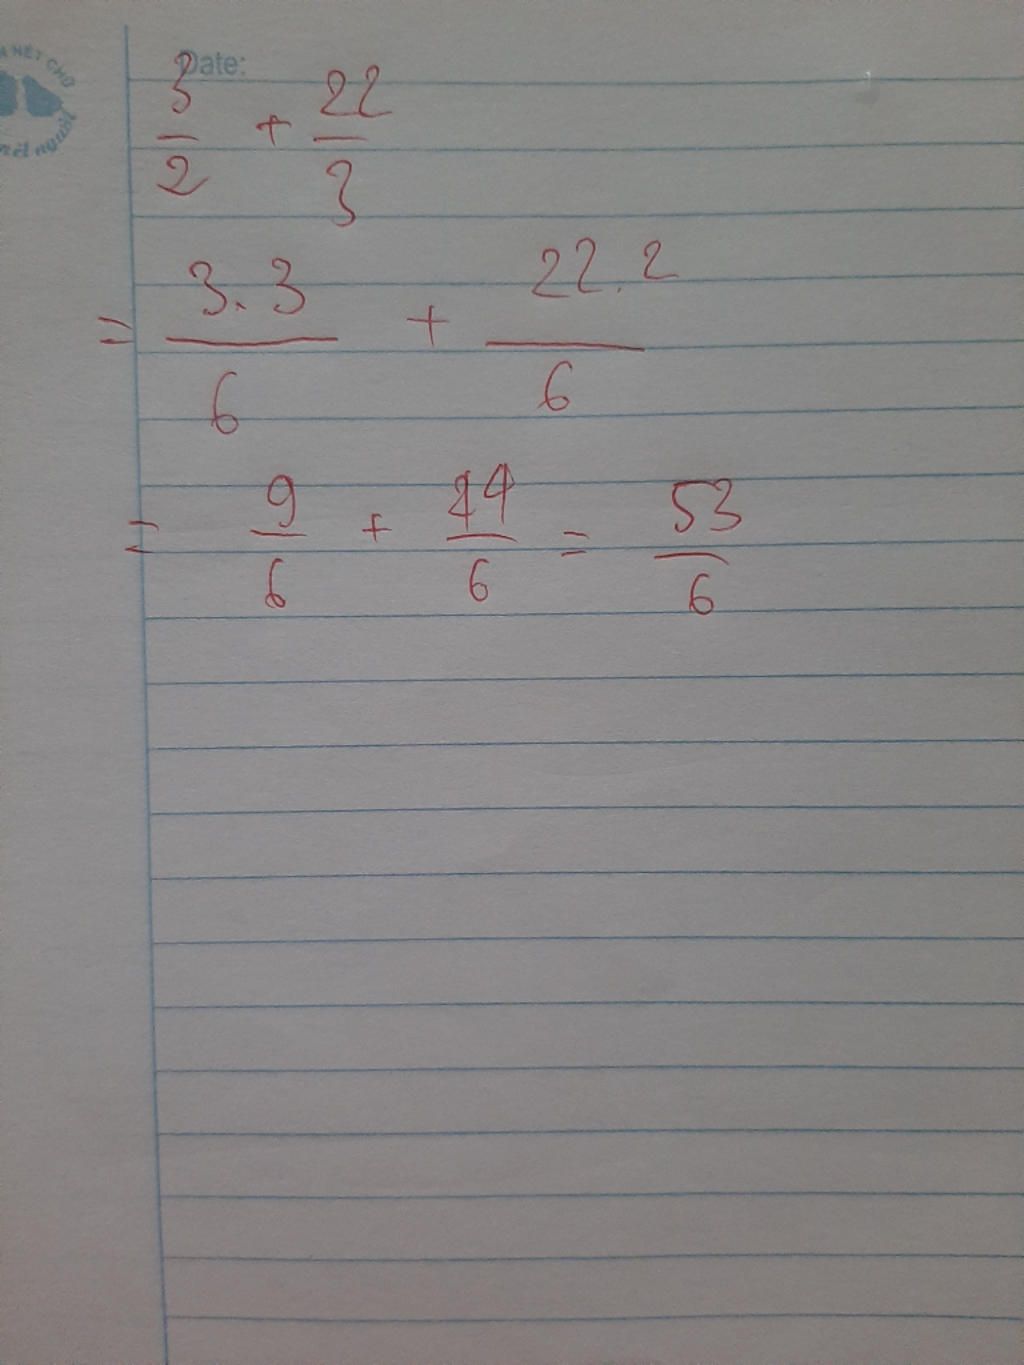 NÉT CHỮ
nết người
Date:
3/2 + 22/3
= 3.3/6 + 22.2/6
= 9/6 + 44/6 = 53/6